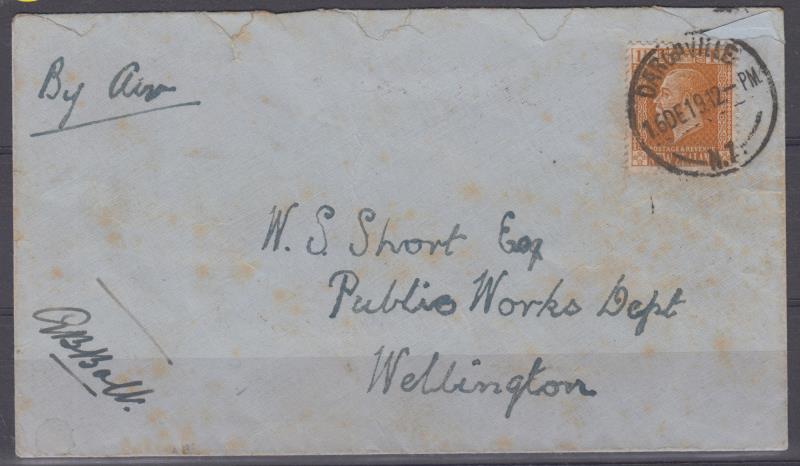 By Air
DARGAVILLE
16DE19 12 - PM
N.Z.
POSTAGE & REVENUE
W. S. Short Esq
Public Works Dept
Wellington